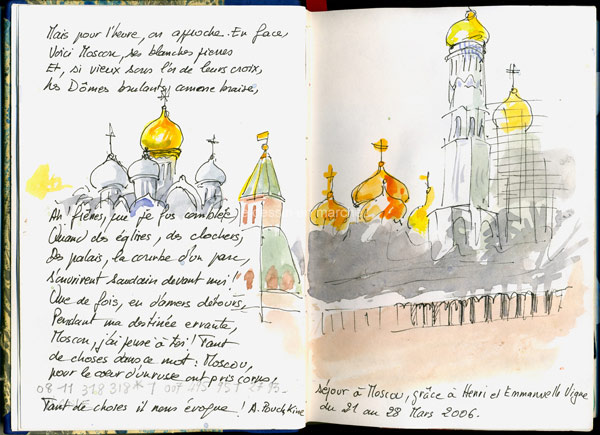 Mais pour l'heure, on approche. En face
Voici Moscou, ses blanches pierres
Et, si vieux sous l'or de leurs croix,
Les Dômes brulants comme braise,
Ah! Frères, que je fus comblée
Quand des églises, des clochers,
Des palais, la courbe d'un parc,
S'ouvrirent soudain devant moi!!
Que de fois, en d'amers détours,
Pendant ma destinée errante,
Moscou, j'ai pensé à toi! Tant
de choses dans ce mot: Moscou,
pour le coeur d'un russe ont pris corps,
Tant de choses il nous évoque! A. Pouchkine
séjour à Moscou, grâce à Henri et Emmanuelle Vigne
du 21 au 28 Mars 2006.